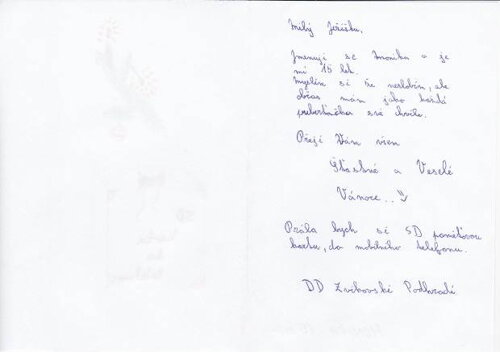 Milý Ježíšku,
Jmenuji se Monika a je
mi 15 let.
Myslím si že nezlobím, ale
občas mám jako každá
puberťačka své chvíle.
Přeji Vám všem
Šťastné a Veselé
Vánoce..
Přála bych si SD paměťovou
kartu, do mobilního telefonu.
DD Zvíkovské Podhradí